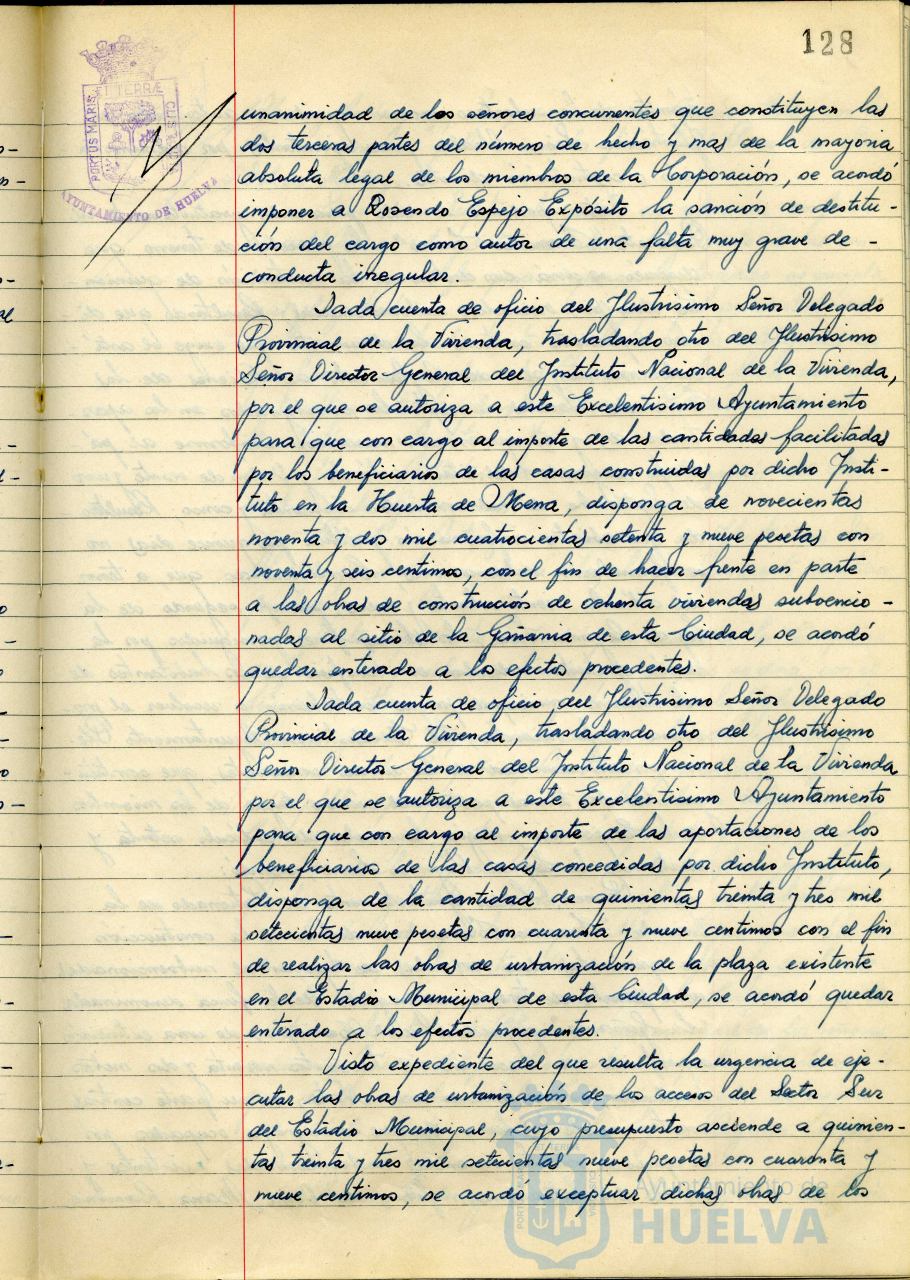 128
PORTUS MARIS
ET TERRÆ
CUSTODIA
AYUNTAMIENTO DE HUELVA
unanimidad de los señores concurrentes que constituyen las
dos terceras partes del número de hecho y mas de la mayoria
absoluta legal de los miembros de la Corporación, se acordó
imponer a Rosendo Espejo Expósito la sanción de destitu-
ción del cargo como autor de una falta muy grave de -
conducta irregular.
Dada cuenta de oficio del Ilustrisimo Señor Delegado
Provincial de la Vivienda, trasladando otro del Ilustrisimo
Señor Director General del Instituto Nacional de la Vivienda,
por el que se autoriza a este Excelentisimo Ayuntamiento
para que con cargo al importe de las cantidades facilitadas
por los beneficiarios de las casas construidas por dicho Insti-
tuto en la Huerta de Mena, disponga de novecientas
noventa y dos mil cuatrocientas setenta y nueve pesetas con
noventa y seis centimos, con el fin de hacer frente en parte
a las obras de construcción de ochenta viviendas subvencio-
nadas al sitio de la Gañania de esta Ciudad, se acordó
quedar enterado a los efectos procedentes.
Dada cuenta de oficio del Ilustrisimo Señor Delegado
Provincial de la Vivienda, trasladando otro del Ilustrisimo
Señor Director General del Instituto Nacional de la Vivienda
por el que se autoriza a este Excelentisimo Ayuntamiento
para que con cargo al importe de las aportaciones de los
beneficiarios de las casas concedidas por dicho Instituto,
disponga de la cantidad de quinientas treinta y tres mil
setecientas nueve pesetas con cuarenta y nueve centimos con el fin
de realizar las obras de urbanización de la plaza existente
en el Estadio Municipal de esta Ciudad, se acordó quedar
enterado a los efectos procedentes.
Visto expediente del que resulta la urgencia de eje-
cutar las obras de urbanización de los accesos del Sector Sur
del Estadio Municipal, cuyo presupuesto asciende a quinien-
tas treinta y tres mil setecientas nueve pesetas con cuarenta y
nueve centimos, se acordó exceptuar dichas obras de los
Ayuntamiento de
HUELVA